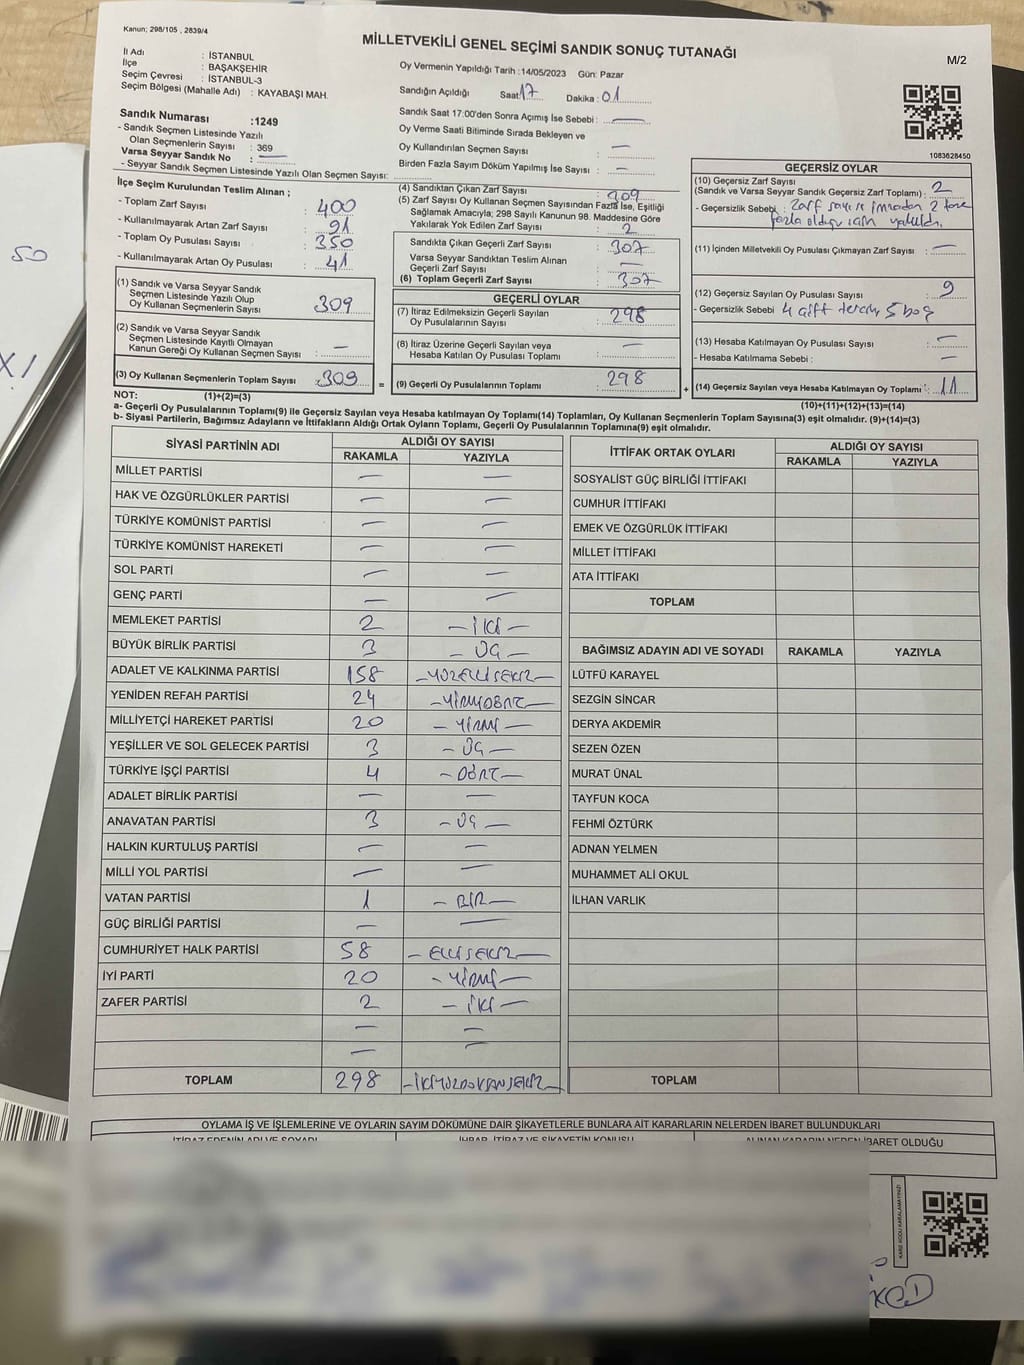 Kanun; 298/105 , 2839/4
MİLLETVEKİLİ GENEL SEÇİMİ SANDIK SONUÇ TUTANAĞI
M/2
İl Adı : İSTANBUL
İlçe : BAŞAKŞEHİR
Seçim Çevresi : İSTANBUL-3
Seçim Bölgesi (Mahalle Adı) : KAYABAŞI MAH.
Oy Vermenin Yapıldığı Tarih :14/05/2023 Gün: Pazar
Sandığın Açıldığı Saat: 17 Dakika : 01
Sandık Saat 17:00'den Sonra Açımış İse Sebebi : —
Oy Verme Saati Bitiminde Sırada Bekleyen ve
Oy Kullandırılan Seçmen Sayısı : —
Birden Fazla Sayım Döküm Yapılmış İse Sayısı : —
Sandık Numarası :1249
- Sandık Seçmen Listesinde Yazılı
Olan Seçmenlerin Sayısı : 369
Varsa Seyyar Sandık No : —
- Seyyar Sandık Seçmen Listesinde Yazılı Olan Seçmen Sayısı:
1083628450
İlçe Seçim Kurulundan Teslim Alınan ;
- Toplam Zarf Sayısı : 400
- Kullanılmayarak Artan Zarf Sayısı : 91
- Toplam Oy Pusulası Sayısı : 350
- Kullanılmayarak Artan Oy Pusulası : 41
(1) Sandık ve Varsa Seyyar Sandık
Seçmen Listesinde Yazılı Olup
Oy Kullanan Seçmenlerin Sayısı : 309
(2) Sandık ve Varsa Seyyar Sandık
Seçmen Listesinde Kayıtlı Olmayan
Kanun Gereği Oy Kullanan Seçmen Sayısı : —
(3) Oy Kullanan Seçmenlerin Toplam Sayısı : 309 =
(4) Sandıktan Çıkan Zarf Sayısı : 309
(5) Zarf Sayısı Oy Kullanan Seçmen Sayısından Fazla İse, Eşitliği
Sağlamak Amacıyla; 298 Sayılı Kanunun 98. Maddesine Göre
Yakılarak Yok Edilen Zarf Sayısı : 2
Sandıkta Çıkan Geçerli Zarf Sayısı : 307
Varsa Seyyar Sandıktan Teslim Alınan
Geçerli Zarf Sayısı : —
(6) Toplam Geçerli Zarf Sayısı : 307
GEÇERLİ OYLAR
(7) İtiraz Edilmeksizin Geçerli Sayılan
Oy Pusulalarının Sayısı : 298
(8) İtiraz Üzerine Geçerli Sayılan veya
Hesaba Katılan Oy Pusulası Toplamı : —
(9) Geçerli Oy Pusulalarının Toplamı : 298 +
GEÇERSİZ OYLAR
(10) Geçersiz Zarf Sayısı
(Sandık ve Varsa Seyyar Sandık Geçersiz Zarf Toplamı) : 2
- Geçersizlik Sebebi : Zarf sayısı imzadan 2 tane
fazla olduğu için yakıldı.
(11) İçinden Milletvekili Oy Pusulası Çıkmayan Zarf Sayısı : —
(12) Geçersiz Sayılan Oy Pusulası Sayısı : 9
- Geçersizlik Sebebi 4 çift tercih, 5 boş
(13) Hesaba Katılmayan Oy Pusulası Sayısı : —
- Hesaba Katılmama Sebebi : —
(14) Geçersiz Sayılan veya Hesaba Katılmayan Oy Toplamı : 11
NOT: (1)+(2)=(3)
(10)+(11)+(12)+(13)=(14)
a- Geçerli Oy Pusulalarının Toplamı(9) ile Geçersiz Sayılan veya Hesaba katılmayan Oy Toplamı(14) Toplamları, Oy Kullanan Seçmenlerin Toplam Sayısına(3) eşit olmalıdır. (9)+(14)=(3)
b- Siyasi Partilerin, Bağımsız Adayların ve İttifakların Aldığı Ortak Oyların Toplamı, Geçerli Oy Pusulalarının Toplamına(9) eşit olmalıdır.
SİYASİ PARTİNİN ADI
ALDIĞI OY SAYISI
RAKAMLA YAZIYLA
MİLLET PARTİSİ — —
HAK VE ÖZGÜRLÜKLER PARTİSİ — —
TÜRKİYE KOMÜNİST PARTİSİ — —
TÜRKİYE KOMÜNİST HAREKETİ — —
SOL PARTİ — —
GENÇ PARTİ — —
MEMLEKET PARTİSİ 2 –İKİ–
BÜYÜK BİRLİK PARTİSİ 3 –ÜÇ–
ADALET VE KALKINMA PARTİSİ 158 –YÜZELLİSEKİZ–
YENİDEN REFAH PARTİSİ 24 –YİRMİDÖRT–
MİLLİYETÇİ HAREKET PARTİSİ 20 –YİRMİ–
YEŞİLLER VE SOL GELECEK PARTİSİ 3 –ÜÇ–
TÜRKİYE İŞÇİ PARTİSİ 4 –DÖRT–
ADALET BİRLİK PARTİSİ — —
ANAVATAN PARTİSİ 3 –ÜÇ–
HALKIN KURTULUŞ PARTİSİ — —
MİLLİ YOL PARTİSİ — —
VATAN PARTİSİ 1 –BİR–
GÜÇ BİRLİĞİ PARTİSİ — —
CUMHURİYET HALK PARTİSİ 58 –ELLİSEKİZ–
İYİ PARTİ 20 –YİRMİ–
ZAFER PARTİSİ 2 –İKİ–
— —
— —
TOPLAM 298 –İKİYÜZDOKSANSEKİZ–
İTTİFAK ORTAK OYLARI
ALDIĞI OY SAYISI
RAKAMLA YAZIYLA
SOSYALİST GÜÇ BİRLİĞİ İTTİFAKI
CUMHUR İTTİFAKI
EMEK VE ÖZGÜRLÜK İTTİFAKI
MİLLET İTTİFAKI
ATA İTTİFAKI
TOPLAM
BAĞIMSIZ ADAYIN ADI VE SOYADI RAKAMLA YAZIYLA
LÜTFÜ KARAYEL
SEZGİN SİNCAR
DERYA AKDEMİR
SEZEN ÖZEN
MURAT ÜNAL
TAYFUN KOCA
FEHMİ ÖZTÜRK
ADNAN YELMEN
MUHAMMET ALİ OKUL
İLHAN VARLIK
TOPLAM
OYLAMA İŞ VE İŞLEMLERİNE VE OYLARIN SAYIM DÖKÜMÜNE DAİR ŞİKAYETLERLE BUNLARA AİT KARARLARIN NELERDEN İBARET BULUNDUKLARI
İTİRAZ EDENİN ADI VE SOYADI İHBAR, İTİRAZ VE ŞİKAYETİN KONUSU ALINAN KARARIN NEDEN İBARET OLDUĞU
KARE KODU KARALAMAYINIZ!
50